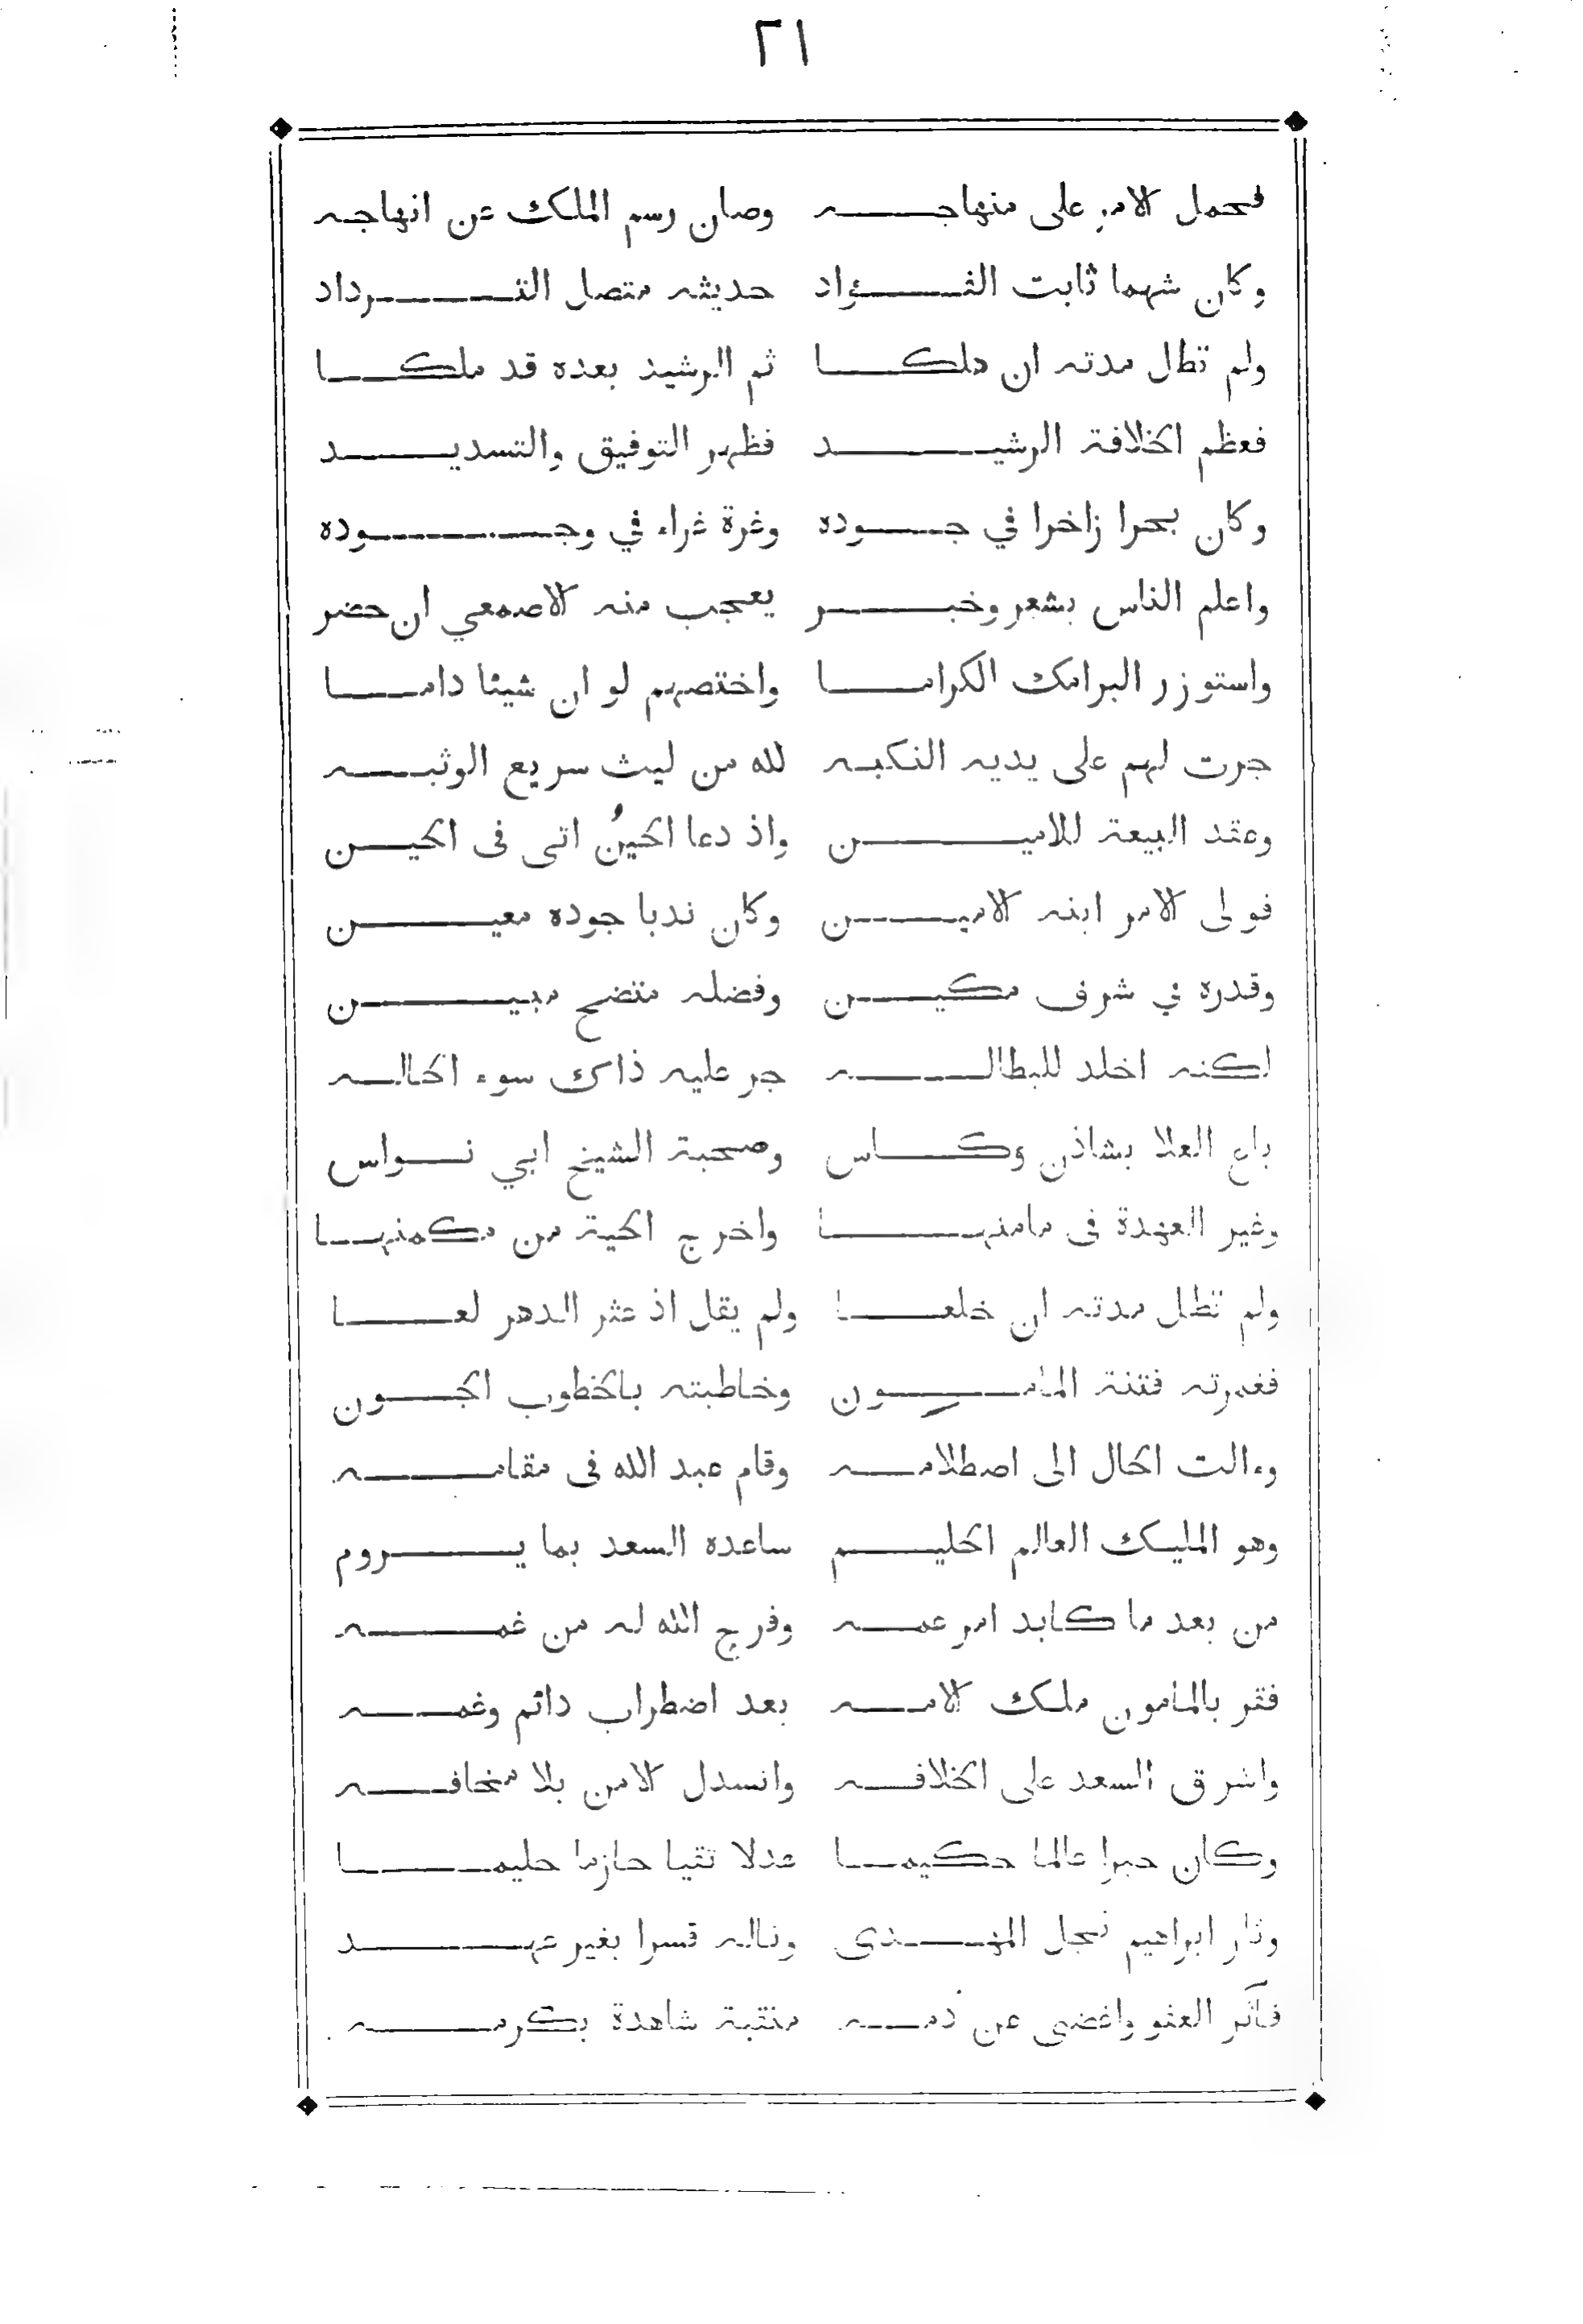 ٢١
فحمل الامر على منهاجه وصان رسم الملك عن انهاجه
وكان شهما ثابت الفؤاد حديثه متصل الترداد
ولم تطل مدته ان هلكا ثم الرشيد بعده قد ملكا
فعظم الخلافة الرشيد فظهر التوفيق والتسديد
وكان بحرا زاخرا في جوده وغرة غراء في وجوده
واعلم الناس بشعر وخبر يعجب منه الاصمعي ان حضر
واستوزر البرامك الكراما واختصهم لو ان شيئا داما
جرت لهم على يديه النكبه لله من ليث سريع الوثبه
وعقد البيعة للامين واذ دعا الحينُ اتى فى الحين
فولى الامر ابنه الامين وكان ندبا جوده معين
وقدره في شرف مكين وفضله متضح مبين
لكنه اخلد للبطاله جر عليه ذاك سوء الحاله
باع العلا بشاذن وكاس وصحبة الشيخ ابي نواس
وغير العهدة فى مامنها واخرج الحية من مكمنها
ولم تطل مدته ان خلعا ولم يقل اذ عثر الدهر لعا
فغمرته فتنة المامون وخاطبته بالخطوب الجون
وءالت الحال الى اصطلامه وقام عبد الله فى مقامه
وهو المليك العالم الحليم ساعده السعد بما يروم
من بعد ما كابد امر عمه وفرج الله له من غمه
فقر بالمامون ملك الامه بعد اضطراب دائم وغمه
واشرق السعد على الخلافه وانسدل الامن بلا مخافه
وكان حبرا عالما حكيما عدلا تقيا حازما حليما
وثار ابراهيم نجل المهدى وناله قسرا بغير عهد
فآثر العفو واغضى عن ذمه منقبة شاهدة بكرمه